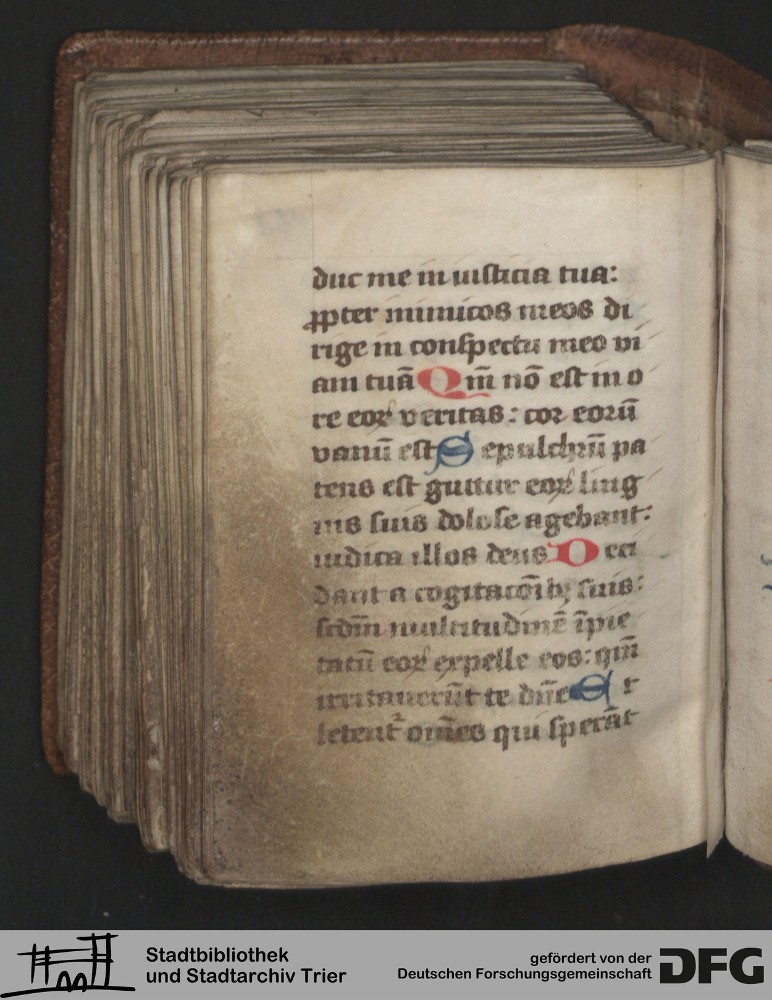 duc me in iusticia tua:
ꝓpter inimicos meos di
rige in conspectu meo vi
am tuā Qm̄ nō est in o
re eoꝝ veritas: cor eorū
vanū est Sepulchrū pa
tens est guttur eoꝝ ling
uis suis dolose agebant:
iudica illos deus Deci
dant a cogitacōībꝫ suis:
scdm̄ multitudinē īpie
tatū eoꝝ expelle eos: qm̄
irritauerūt te dn̄e Et
letent᷑ om̄es qui sperāt
Stadtbibliothek
und Stadtarchiv Trier
gefördert von der
Deutschen Forschungsgemeinschaft
DFG